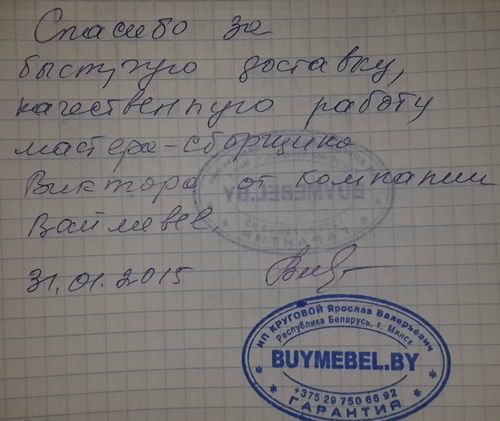 Спасибо за
быструю доставку,
качественную работу
мастера-сборщика
Виктора от компании
Баймебел.
31.01.2015
ИП КРУГОВОЙ Ярослав Валерьевич
Республика Беларусь, г. Минск
BUYMEBEL.BY
+375 29 750 66 92
ГАРАНТИЯ
BUYMEBEL.BY
ГАРАНТИЯ